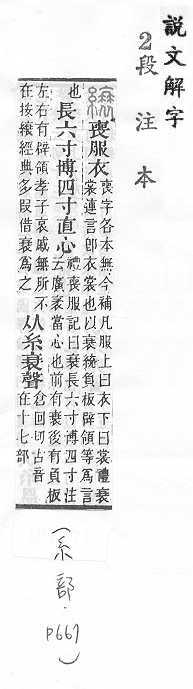 説文解字
2段注本
縗 喪服衣
喪字各本無今補凡服上曰衣下曰裳禮衰
裳連言即衣裳也以衰統負板辟領等爲言
也長六寸博四寸直心
禮喪服記曰衰長六寸博四寸注
云廣袤當心也前有衰後有負板
左右有辟領孝子哀戚無所不
在按縗經典多叚借衰爲之
从糸衰聲
倉回切古音
在十七部
(糸部.P667)